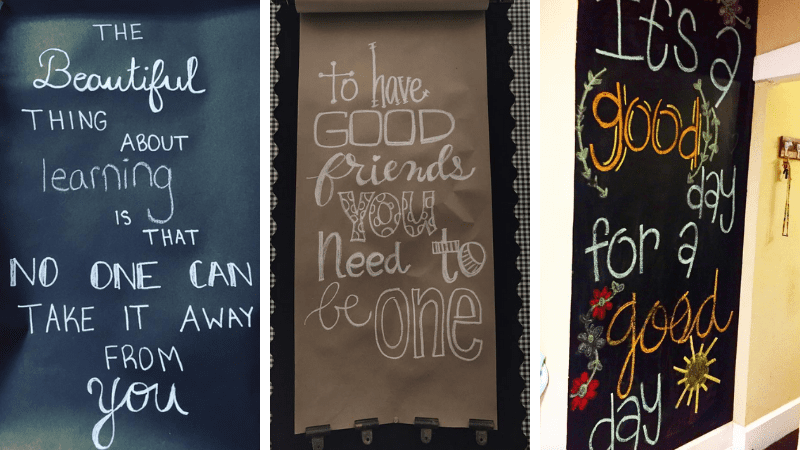 THE
Beautiful
THING
ABOUT
learning
IS
THAT
NO ONE CAN
TAKE IT AWAY
FROM
you
to have
GOOD
friends
YOU
Need to
be one
It's a
good
day
for a
good
day